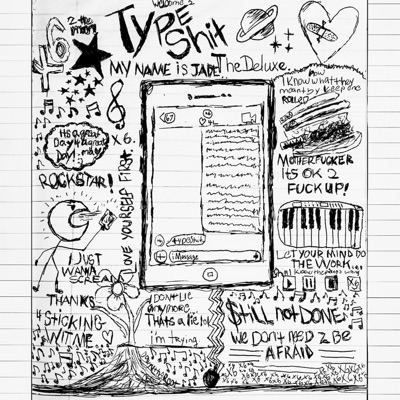 welcome 2
TYPE
Shit
2 the
MY NAME IS JADE
The Deluxe.
I know what they
mean by keep one
ROLLED
Its a great
Day 4 a great
Day!
X6.
ROCKSTAR!
LOVE YOURSELF FIRST
MOTHERFUCKER
ITS OK 2
FUCK UP!
67
#typeshit
iMessage
I JUST
WANNA
SCREAM
LET YOUR MIND DO
THE WORK..
THANKS
4 STICKING
WIT ME
I DONT LIE
anymore..
THATS a lie lol
im trying
$TiLL noT DONE
We Dont need To Be
AFRAID